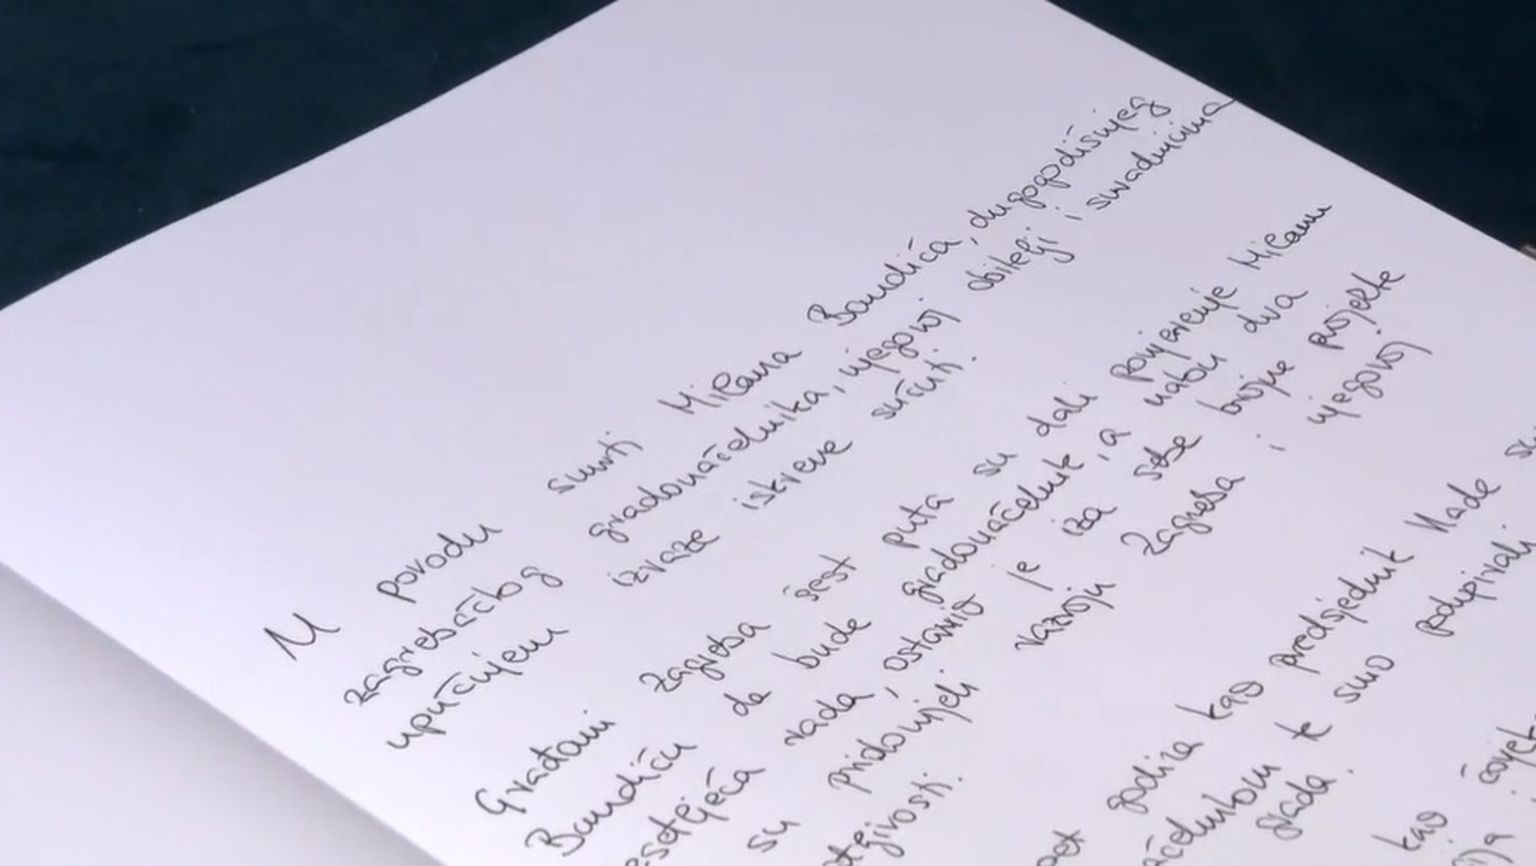 U povodu smrti Milana Bandića, dugogodišnjeg
zagrebačkog gradonačelnika, njegovoj obitelji i suradnicima
upućujem izraze iskrene sućuti.
Građani Zagreba šest puta su dali povjerenje Milanu
Bandiću da bude gradonačelnik, a nakon dva
desetljeća rada, ostavio je iza sebe brojne projekte
su pridonijeli razvoju Zagreba i njegovoj
godina kao predsjednik Vlade
te smo podupirali
grada.
kao čovjek